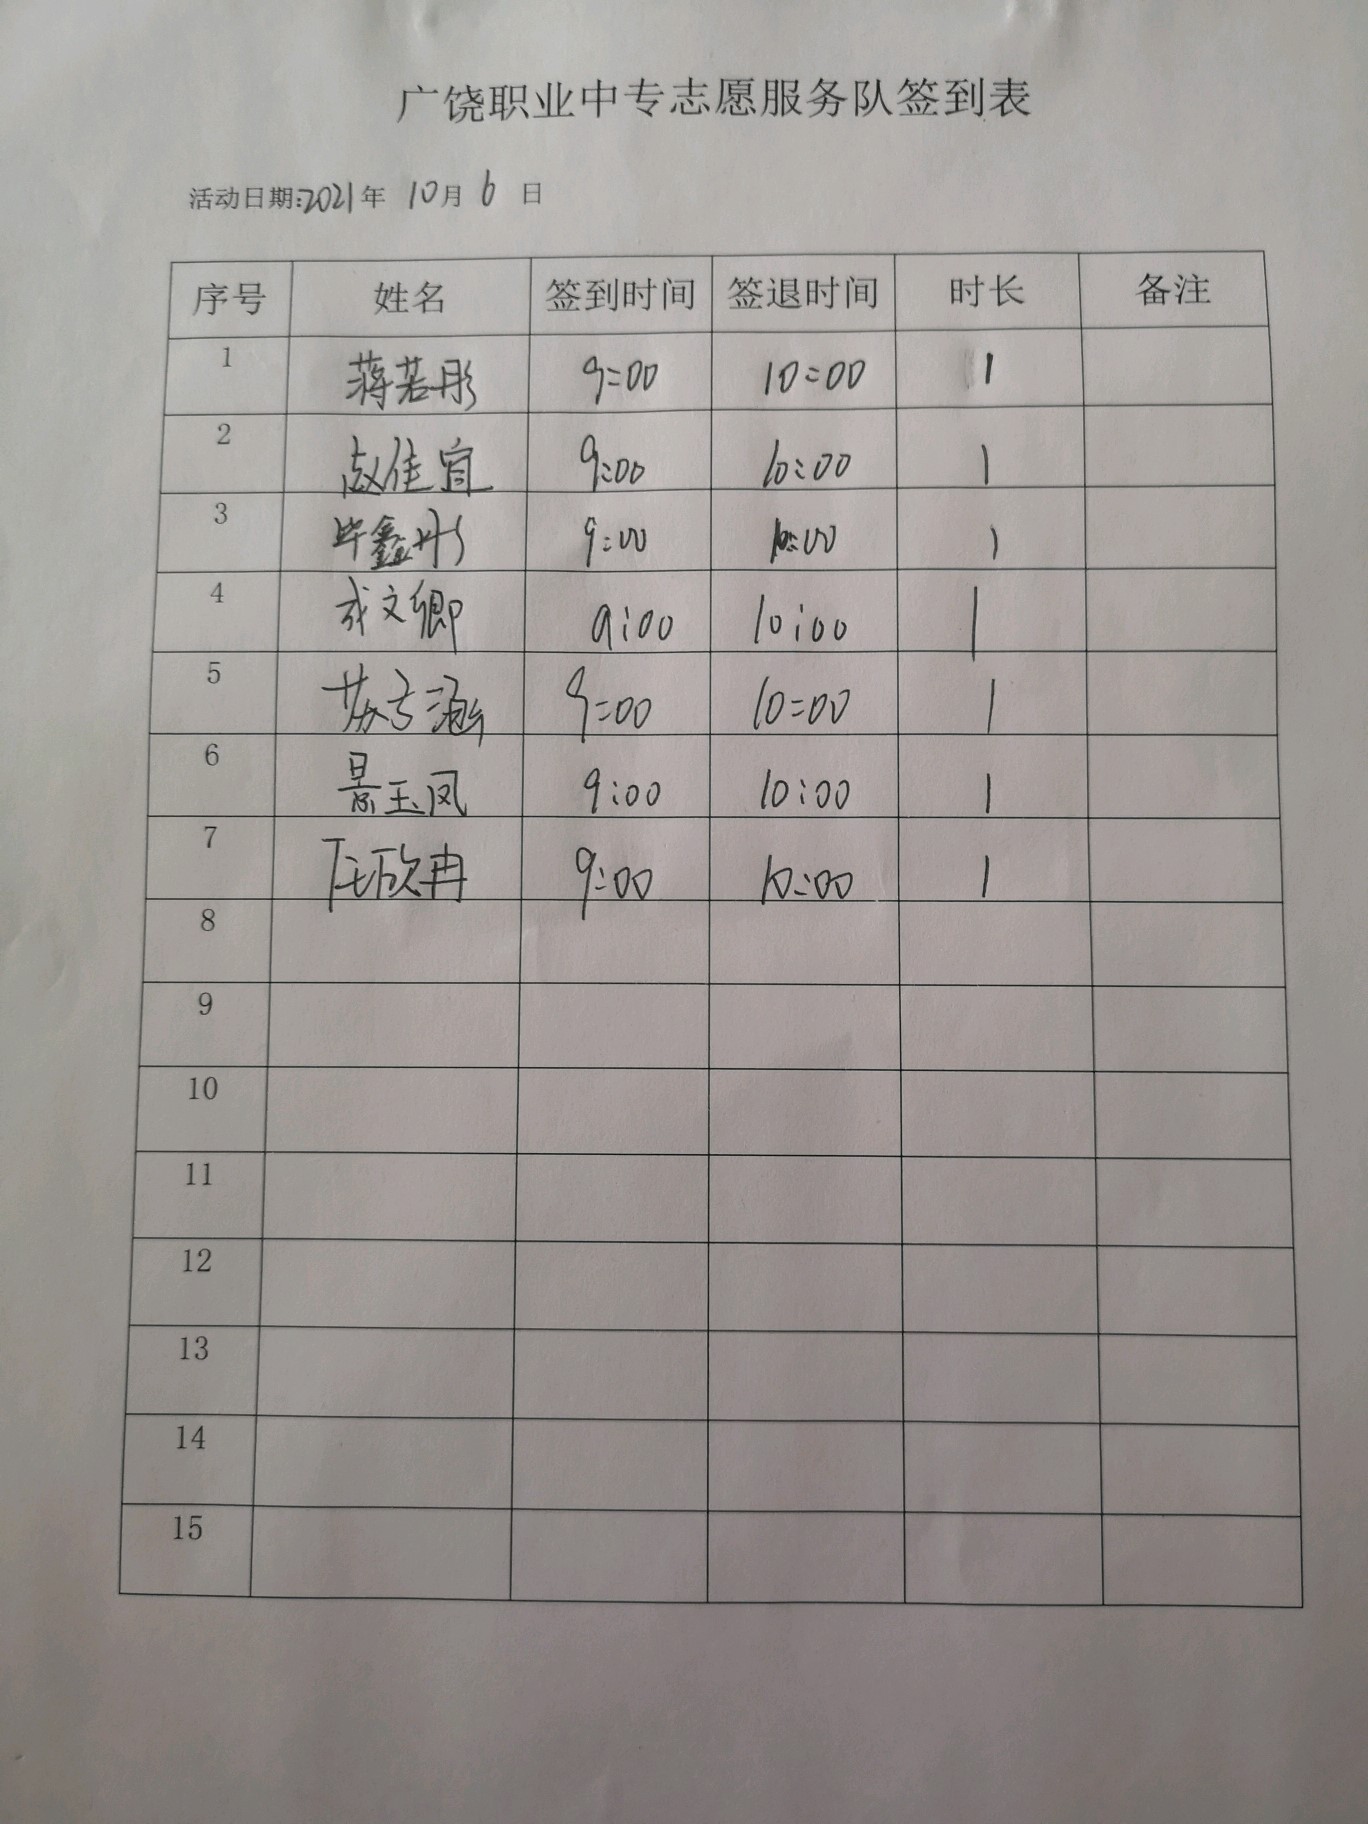 广饶职业中专志愿服务队签到表
活动日期:2021年 10月 6 日
序号 姓名 签到时间 签退时间 时长 备注
1 蒋若彤 9:00 10:00 1
2 赵佳宜 9:00 10:00 1
3 毕鑫彤 9:00 10:00 1
4 成文卿 9:00 10:00 1
5 9:00 10:00 1
6 景玉凤 9:00 10:00 1
7 9:00 10:00 1
8
9
10
11
12
13
14
15